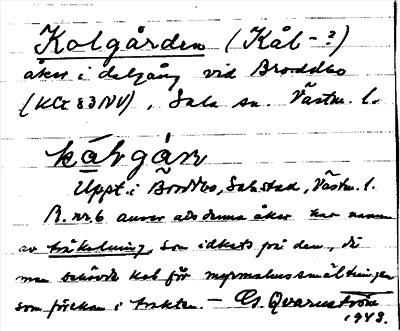 Kolgården (Kål-?)
åker i delgång vid Broddbo
(KCt 83NV), Sala sn. Västm. l.
kåhgán
Uppt. i Broddbo, Sala stad, Västm. l.
B. nr 6 anser att denna åker har namn
av kolning, som idkats på den, då
man behövde kol för myrmalmssmältningen
som förekom i trakten. – G. Qvarnström
1943.